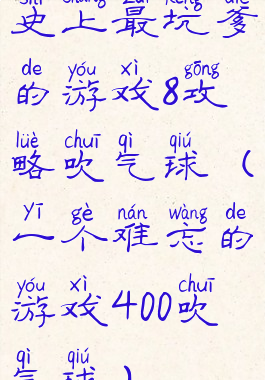 shǐ shàng zuì kēng diē
史上最坑爹
de yóu xì gōng
的游戏8攻
lüè chuī qì qiú
略吹气球（
yī gè nán wàng de
一个难忘的
yóu xì chuī
游戏400吹
qì qiú
气球）